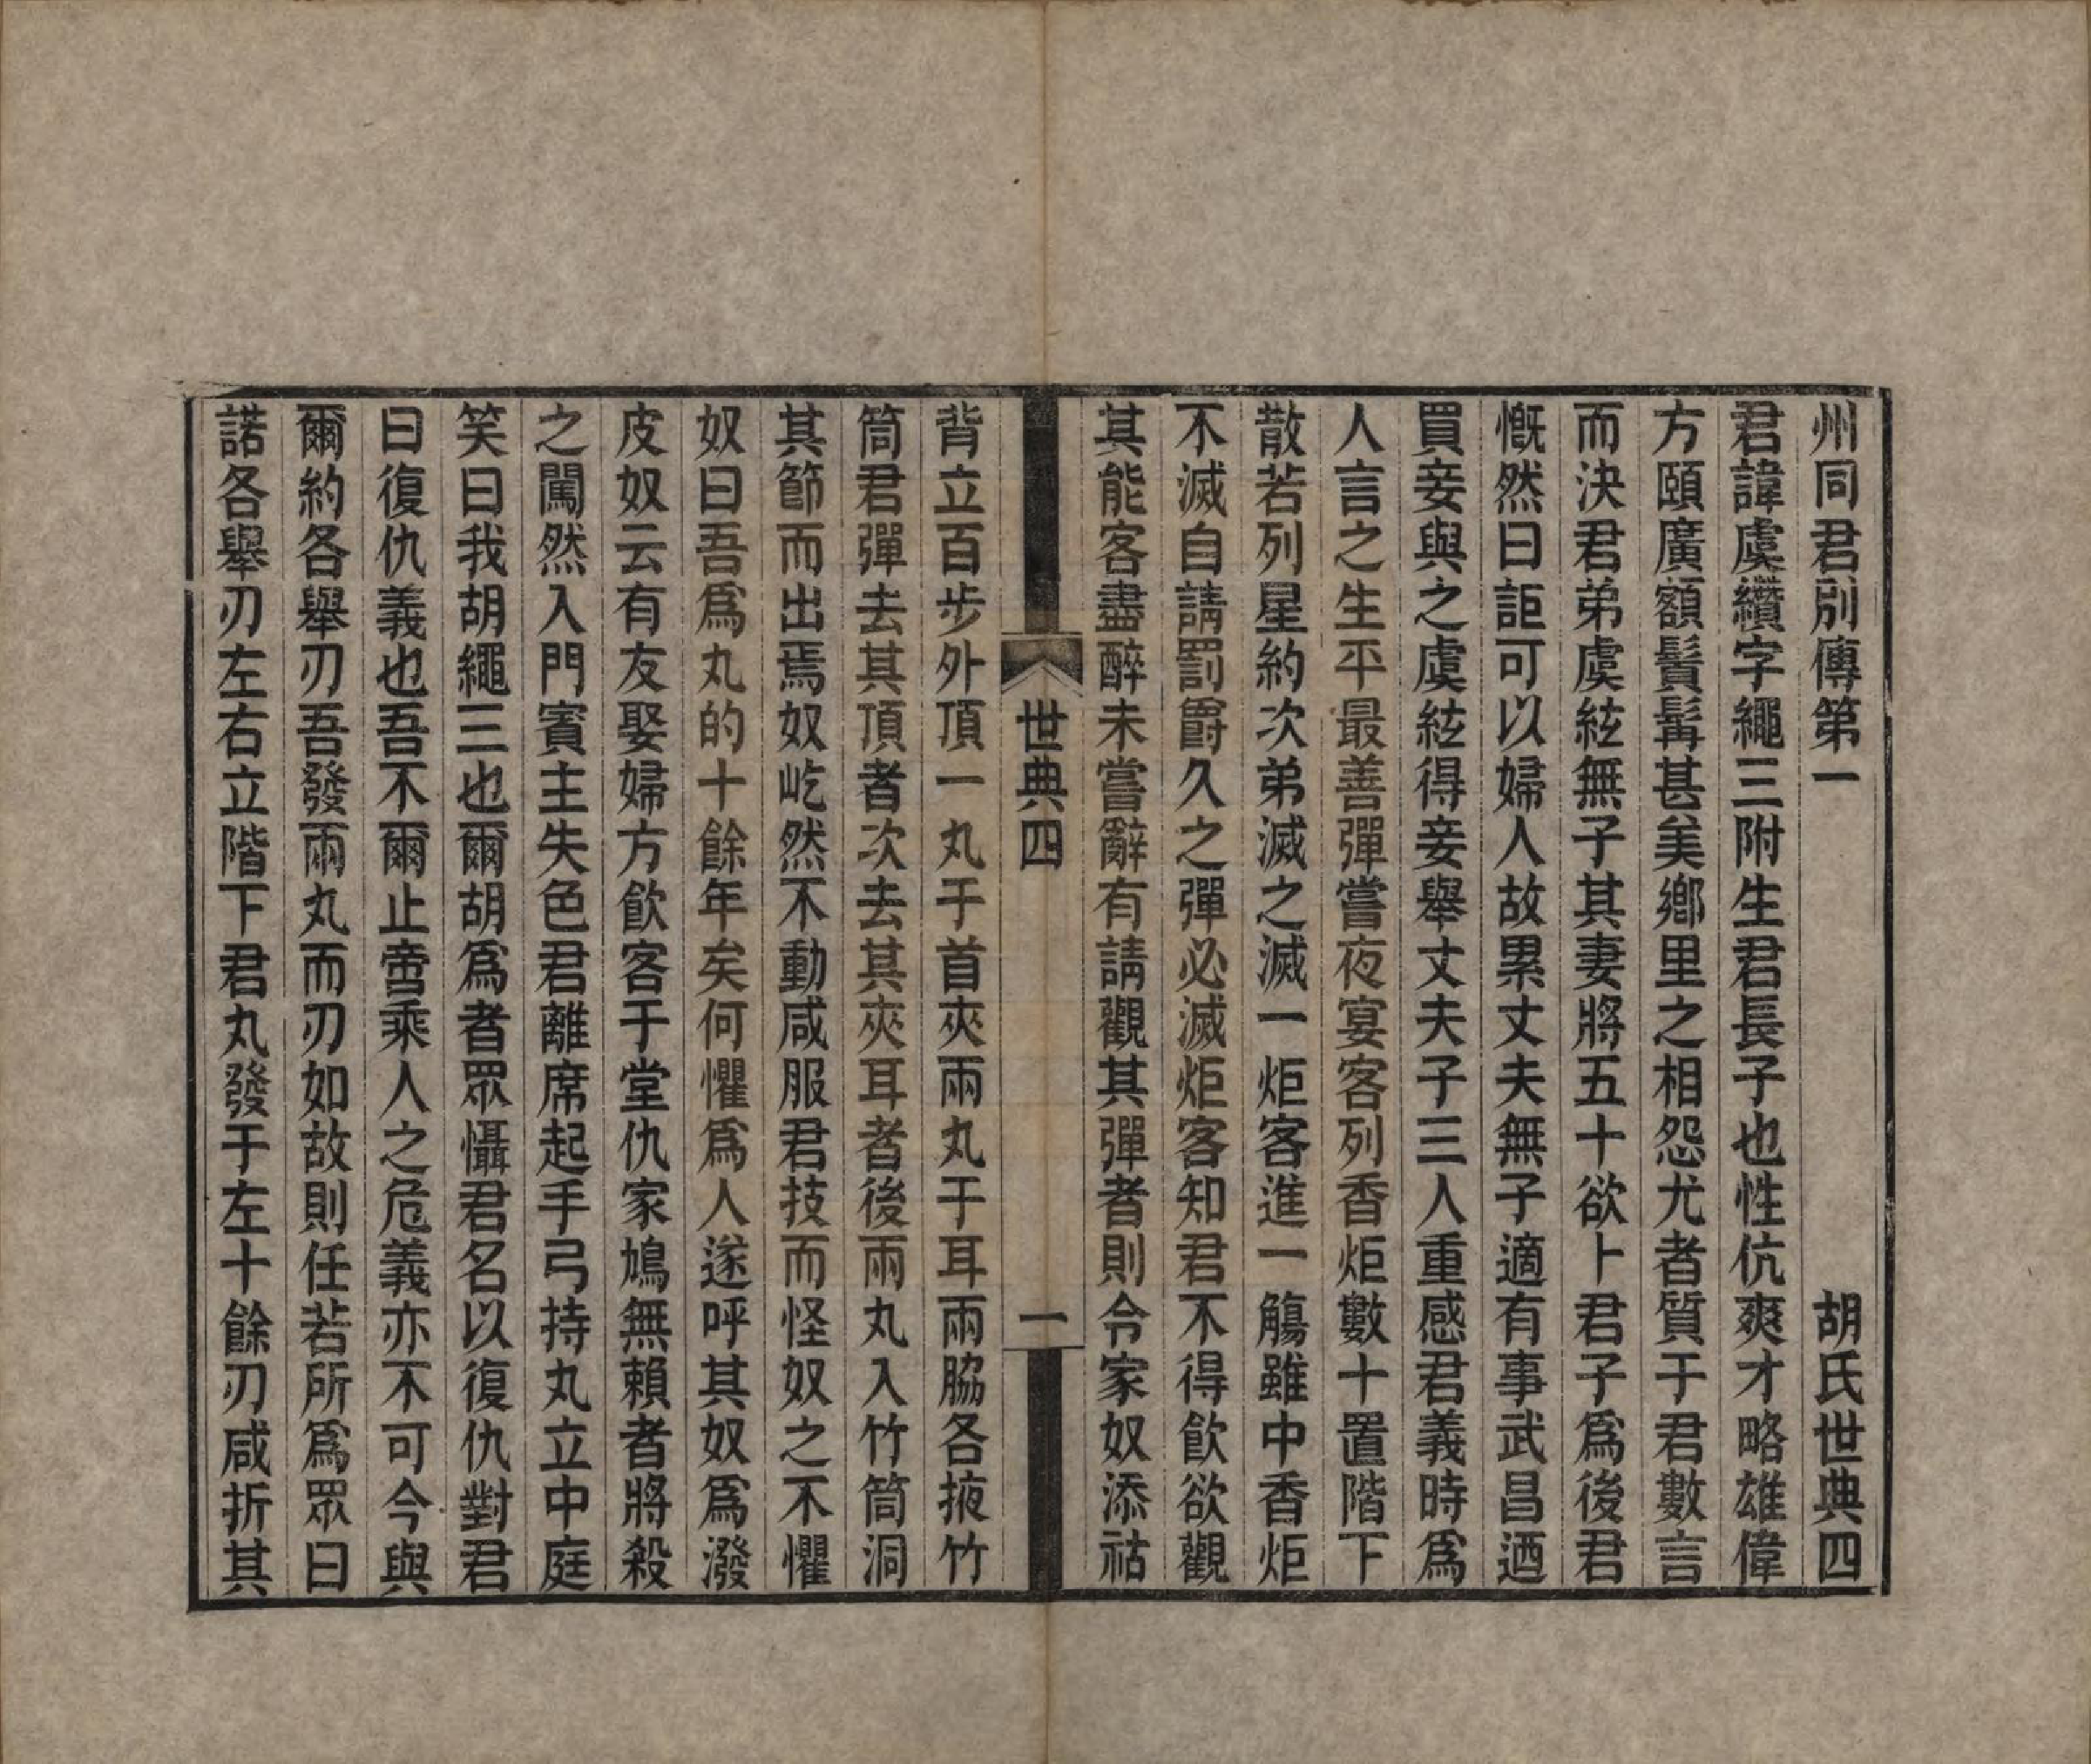 州同君別傳第一　胡氏世典四
君諱虞纘字繩三附生君長子也性伉爽才略雄偉
方頤廣額鬒髯甚美鄉里之相怨尤者質于君數言
而決君弟虞紘無子其妻將五十欲卜君子爲後君
慨然曰詎可以婦人故累丈夫無子適有事武昌迺
買妾與之虞紘得妾舉丈夫子三人重感君義時爲
人言之生平最善彈嘗夜宴客列香炬數十置階下
散若列星約次弟滅之滅一炬客進一觴雖中香炬
不滅自請罰爵久之彈必滅炬客知君不得飲欲觀
其能客盡醉未嘗辭有請觀其彈者則令家奴添祜
世典四　一
背立百步外頂一丸于首夾兩丸于耳兩脇各掖竹
筒君彈去其頂者次去其夾耳者後兩丸入竹筒洞
其節而出焉奴屹然不動咸服君技而怪奴之不懼
奴曰吾爲丸的十餘年矣何懼爲人遂呼其奴爲潑
皮奴云有友娶婦方飲客于堂仇家鳩無賴者將殺
之闖然入門賓主失色君離席起手弓持丸立中庭
笑曰我胡繩三也爾胡爲者眾懾君名以復仇對君
曰復仇義也吾不爾止啻乘人之危義亦不可今與
爾約各舉刃吾發兩丸而刃如故則任若所爲眾曰
諾各舉刃左右立階下君丸發于左十餘刃咸折其